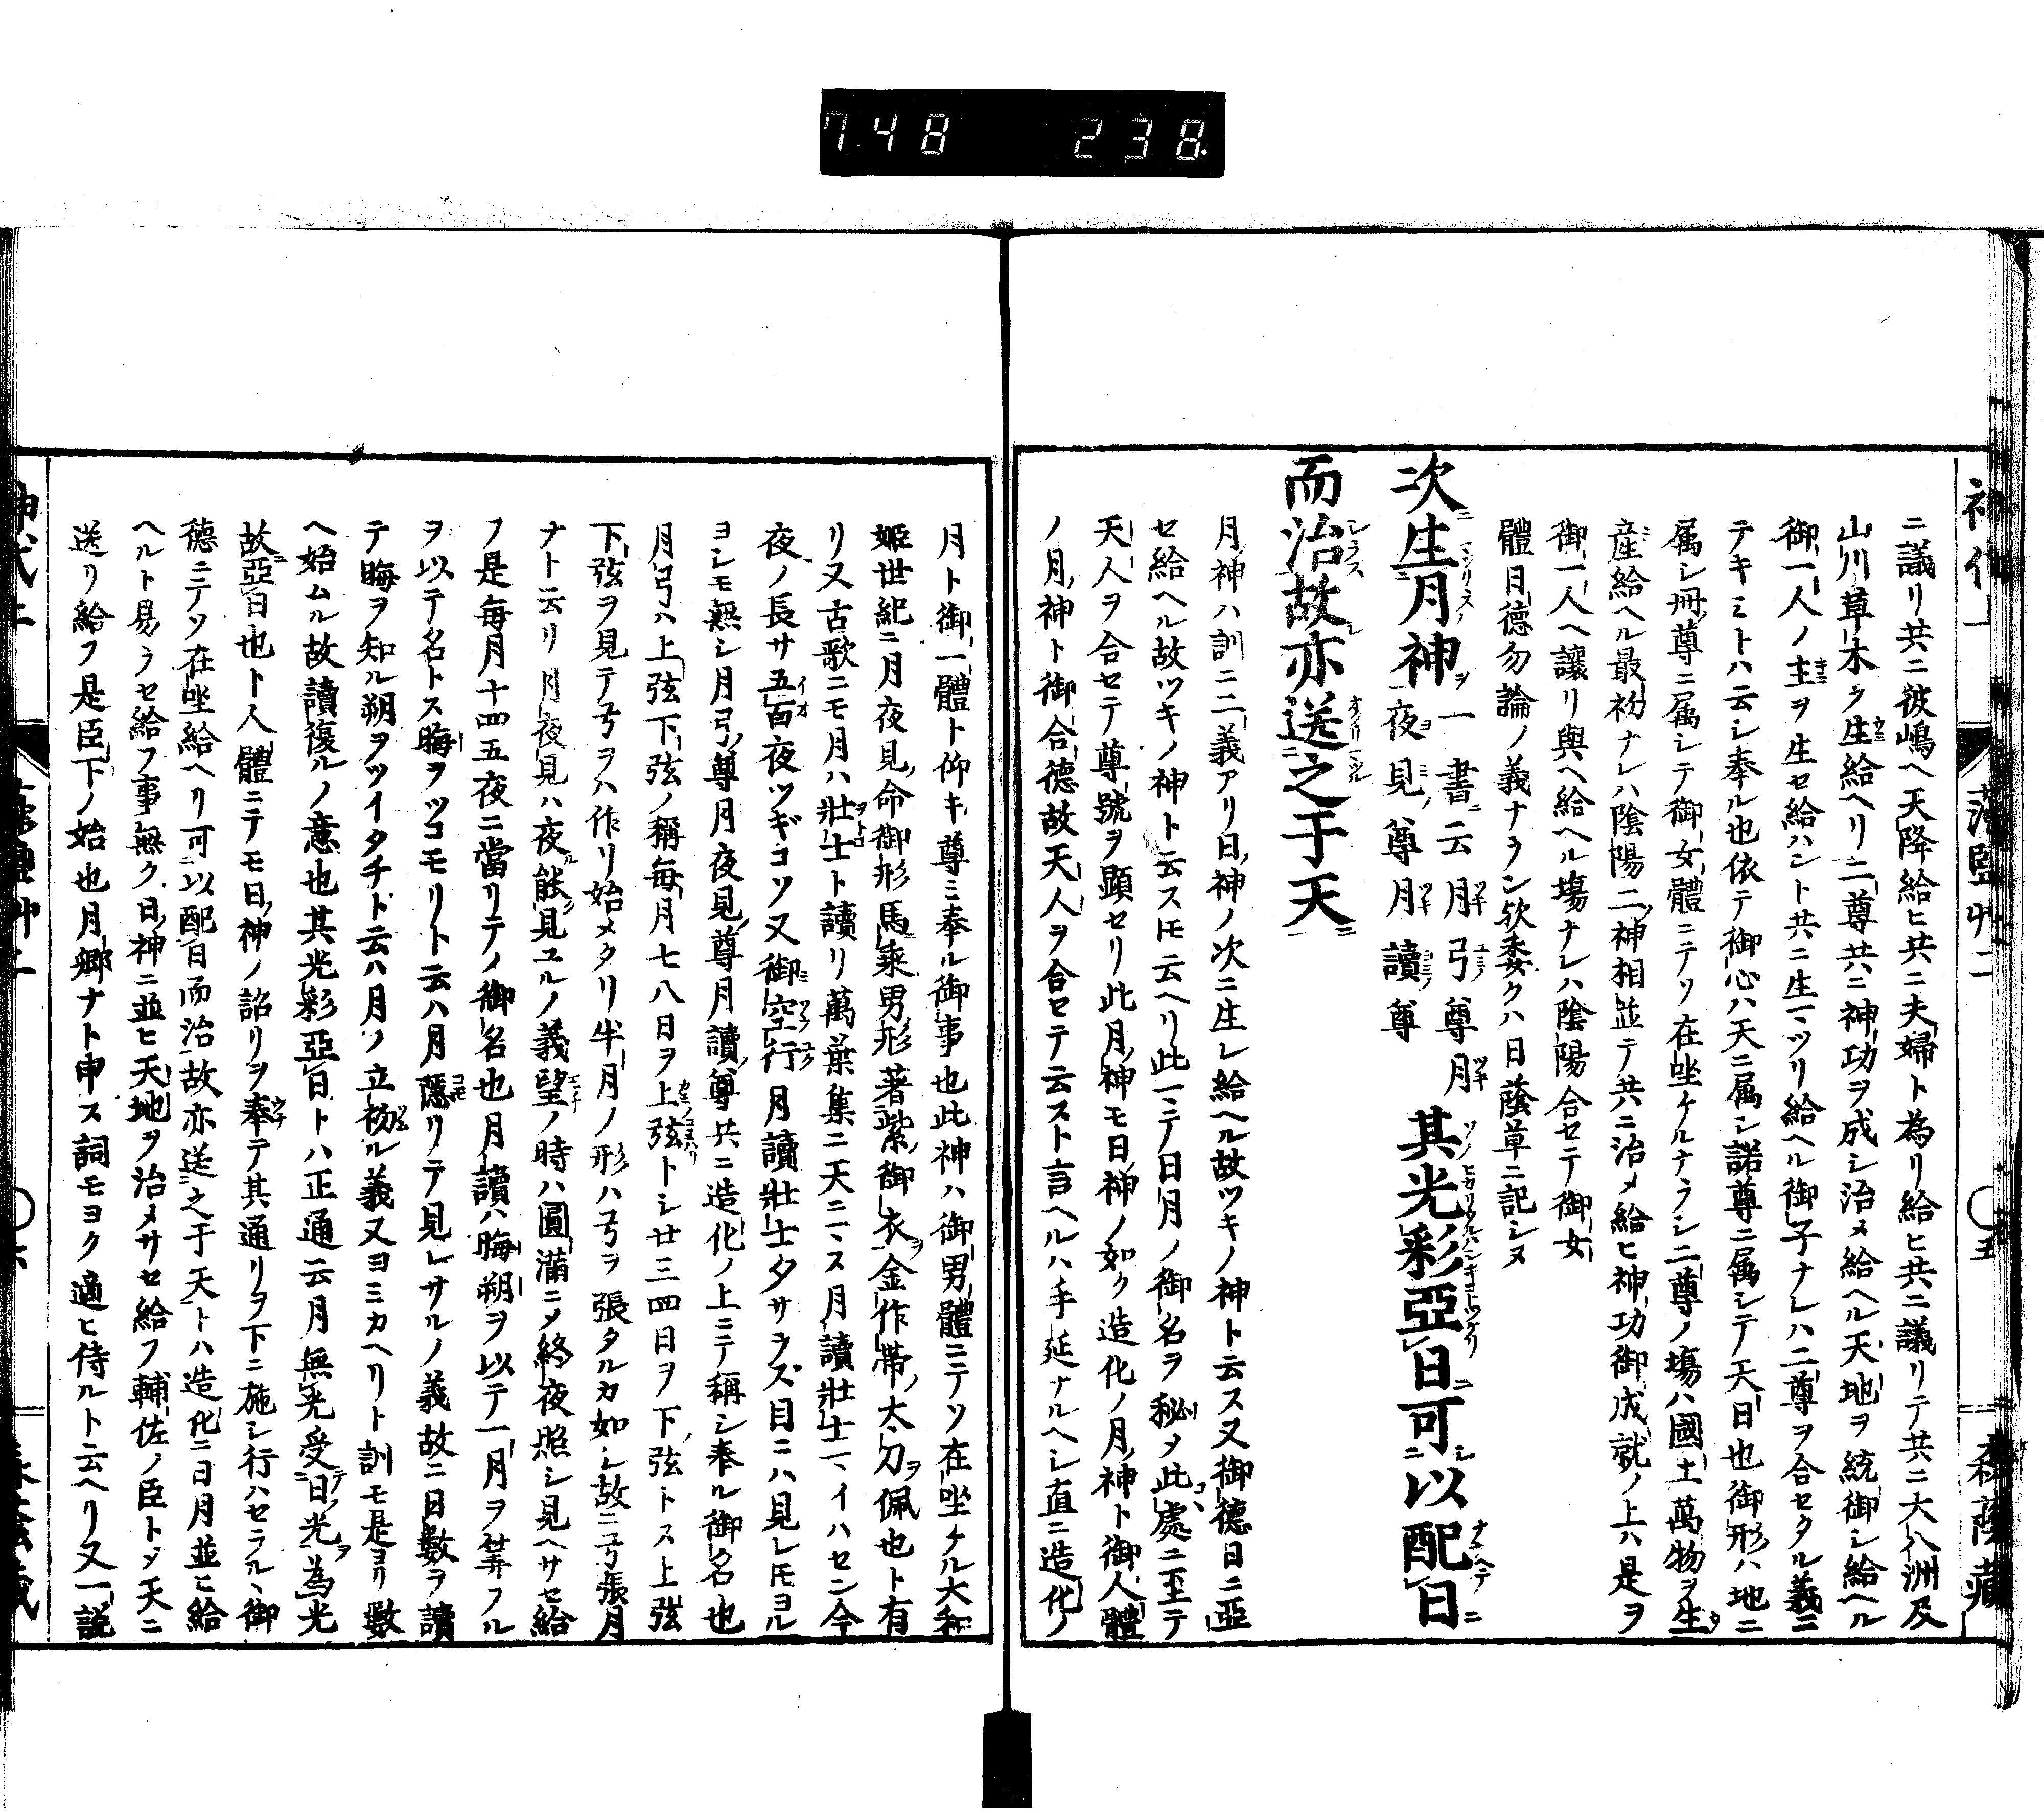 748 238.
神代上
藻鹽艸二
○五
森蔭藏
ニ議リ共ニ彼嶋ヘ天降給ヒ共ニ夫婦ト為リ給ヒ共ニ議リテ共ニ大八洲及
山川草木ヲ生給ヘリ二尊共ニ神功ヲ成シ治メ給ヘル天地ヲ統御シ給ヘル
御一人ノ主ヲ生セ給ハント共ニ生ミツリ給ヘル御子ナレハ二尊ヲ合セタル義ニ
テキミトハ云シ奉ル也依テ御心ハ天ニ属シ諾尊ニ属シテ天日也御形ハ地ニ
属シ冊尊ニ属シテ御女體ニテソ在坐ケルナラシ二尊ノ塲ハ國土萬物ヲ生
産給ヘル最初ナレハ陰陽二神相並テ共ニ治メ給ヒ神功御成就ノ上ハ是ヲ
御一人ヘ讓リ與ヘ給ヘル塲ナレハ陰陽合セテ御女
體日德勿論ノ義ナラン欤委クハ日蔭草ニ記シヌ
次生月神 一書云月弓尊月夜見尊月讀尊 其光彩亞日可以配日
而治故亦送之于天
月神ハ訓ニ二義アリ日神ノ次ニ生レ給ヘル故ツキノ神ト云ス又御德日ニ亞
セ給ヘル故ツキノ神ト云スモ云ヘリ此ニテ日月ノ御名ヲ秘メ此處ニ至テ
天人ヲ合セテ尊號ヲ顕セリ此月神モ日神ノ如ク造化ノ月神ト御人體
ノ月神ト御合德故天人ヲ合セテ云スト言ヘルハ手延ナルヘシ直ニ造化ノ
月ト御一體ト仰キ尊ミ奉ル御事也此神ハ御男體ニテソ在坐ケル大和
姬世紀ニ月夜見命御形馬乘男形著紫御衣金作帶ノ太刀佩也ト有
リ又古歌ニモ月ハ壯士ト讀リ萬葉集ニ天ニマス月讀壯士マイハセン今
夜ノ長サ五百夜ツギコソ又御空行月讀壯士タサラズ目ニハ見レモヨル
ヨシモ無シ月弓尊月夜見尊月讀尊共ニ造化ノ上ニテ稱シ奉ル御名也
月弓ハ上弦下弦ノ稱每月七八日ヲ上弦トシ廿三四日ヲ下弦トス上弦
下弦ヲ見テ弓ヲハ作リ始メタリ半月ノ形ハ弓ヲ張タルカ如シ故ニ弓張月
ナト云リ月夜見ハ夜能見ユルノ義望ノ時ハ圓滿ニメ終夜照シ見ヘサセ給
フ是每月十四五夜ニ當リテノ御名也月讀ハ晦朔ヲ以テ一月ヲ筭フル
ヲ以テ名トス晦ヲツコモリト云ハ月隱リテ見レサルノ義故ニ日數ヲ讀
テ晦ヲ知ル朔ヲツイタチト云ハ月ノ立初ル義又ヨミカヘリト訓モ是ヨリ數
ヘ始ムル故讀復ルノ意也其光彩亞日トハ正通云月無光受日光為光
故亞日也ト人體ニテモ日神ノ詔リヲ奉テ其通リヲ下ニ施シ行ハセラル、御
德ニテソ在坐給ヘリ可以配日而治故亦送之于天トハ造化ニ日月並ヒ給
ヘルト易ラセ給フ事無ク日神ニ並ヒ天地ヲ治メサセ給フ輔佐ノ臣トメ天ニ
送リ給フ是臣下ノ始也月卿ナト申ス詞モヨク適ヒ侍ルト云ヘリ又一說